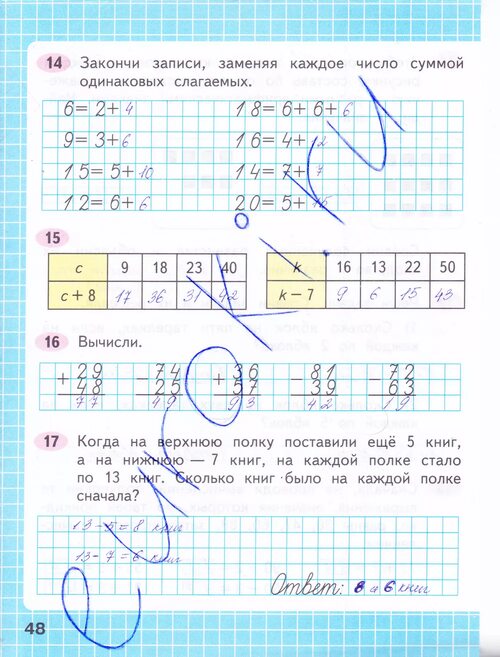 14 Закончи записи, заменяя каждое число суммой
одинаковых слагаемых.
6=2+4 18=6+6+6
9=3+6 16=4+12
15=5+10 14=7+7
12=6+6 20=5+15
15
c 9 18 23 40
c+8 17 36 31 42
k 16 13 22 50
k-7 9 6 15 43
16 Вычисли.
+29 -74 +36 -81 -72
48 25 57 39 63
77 49 93 42 19
17 Когда на верхнюю полку поставили ещё 5 книг,
а на нижнюю — 7 книг, на каждой полке стало
по 13 книг. Сколько книг было на каждой полке
сначала?
13-5=8 книг
13-7=6 книг
Ответ: 8 и 6 книг
48